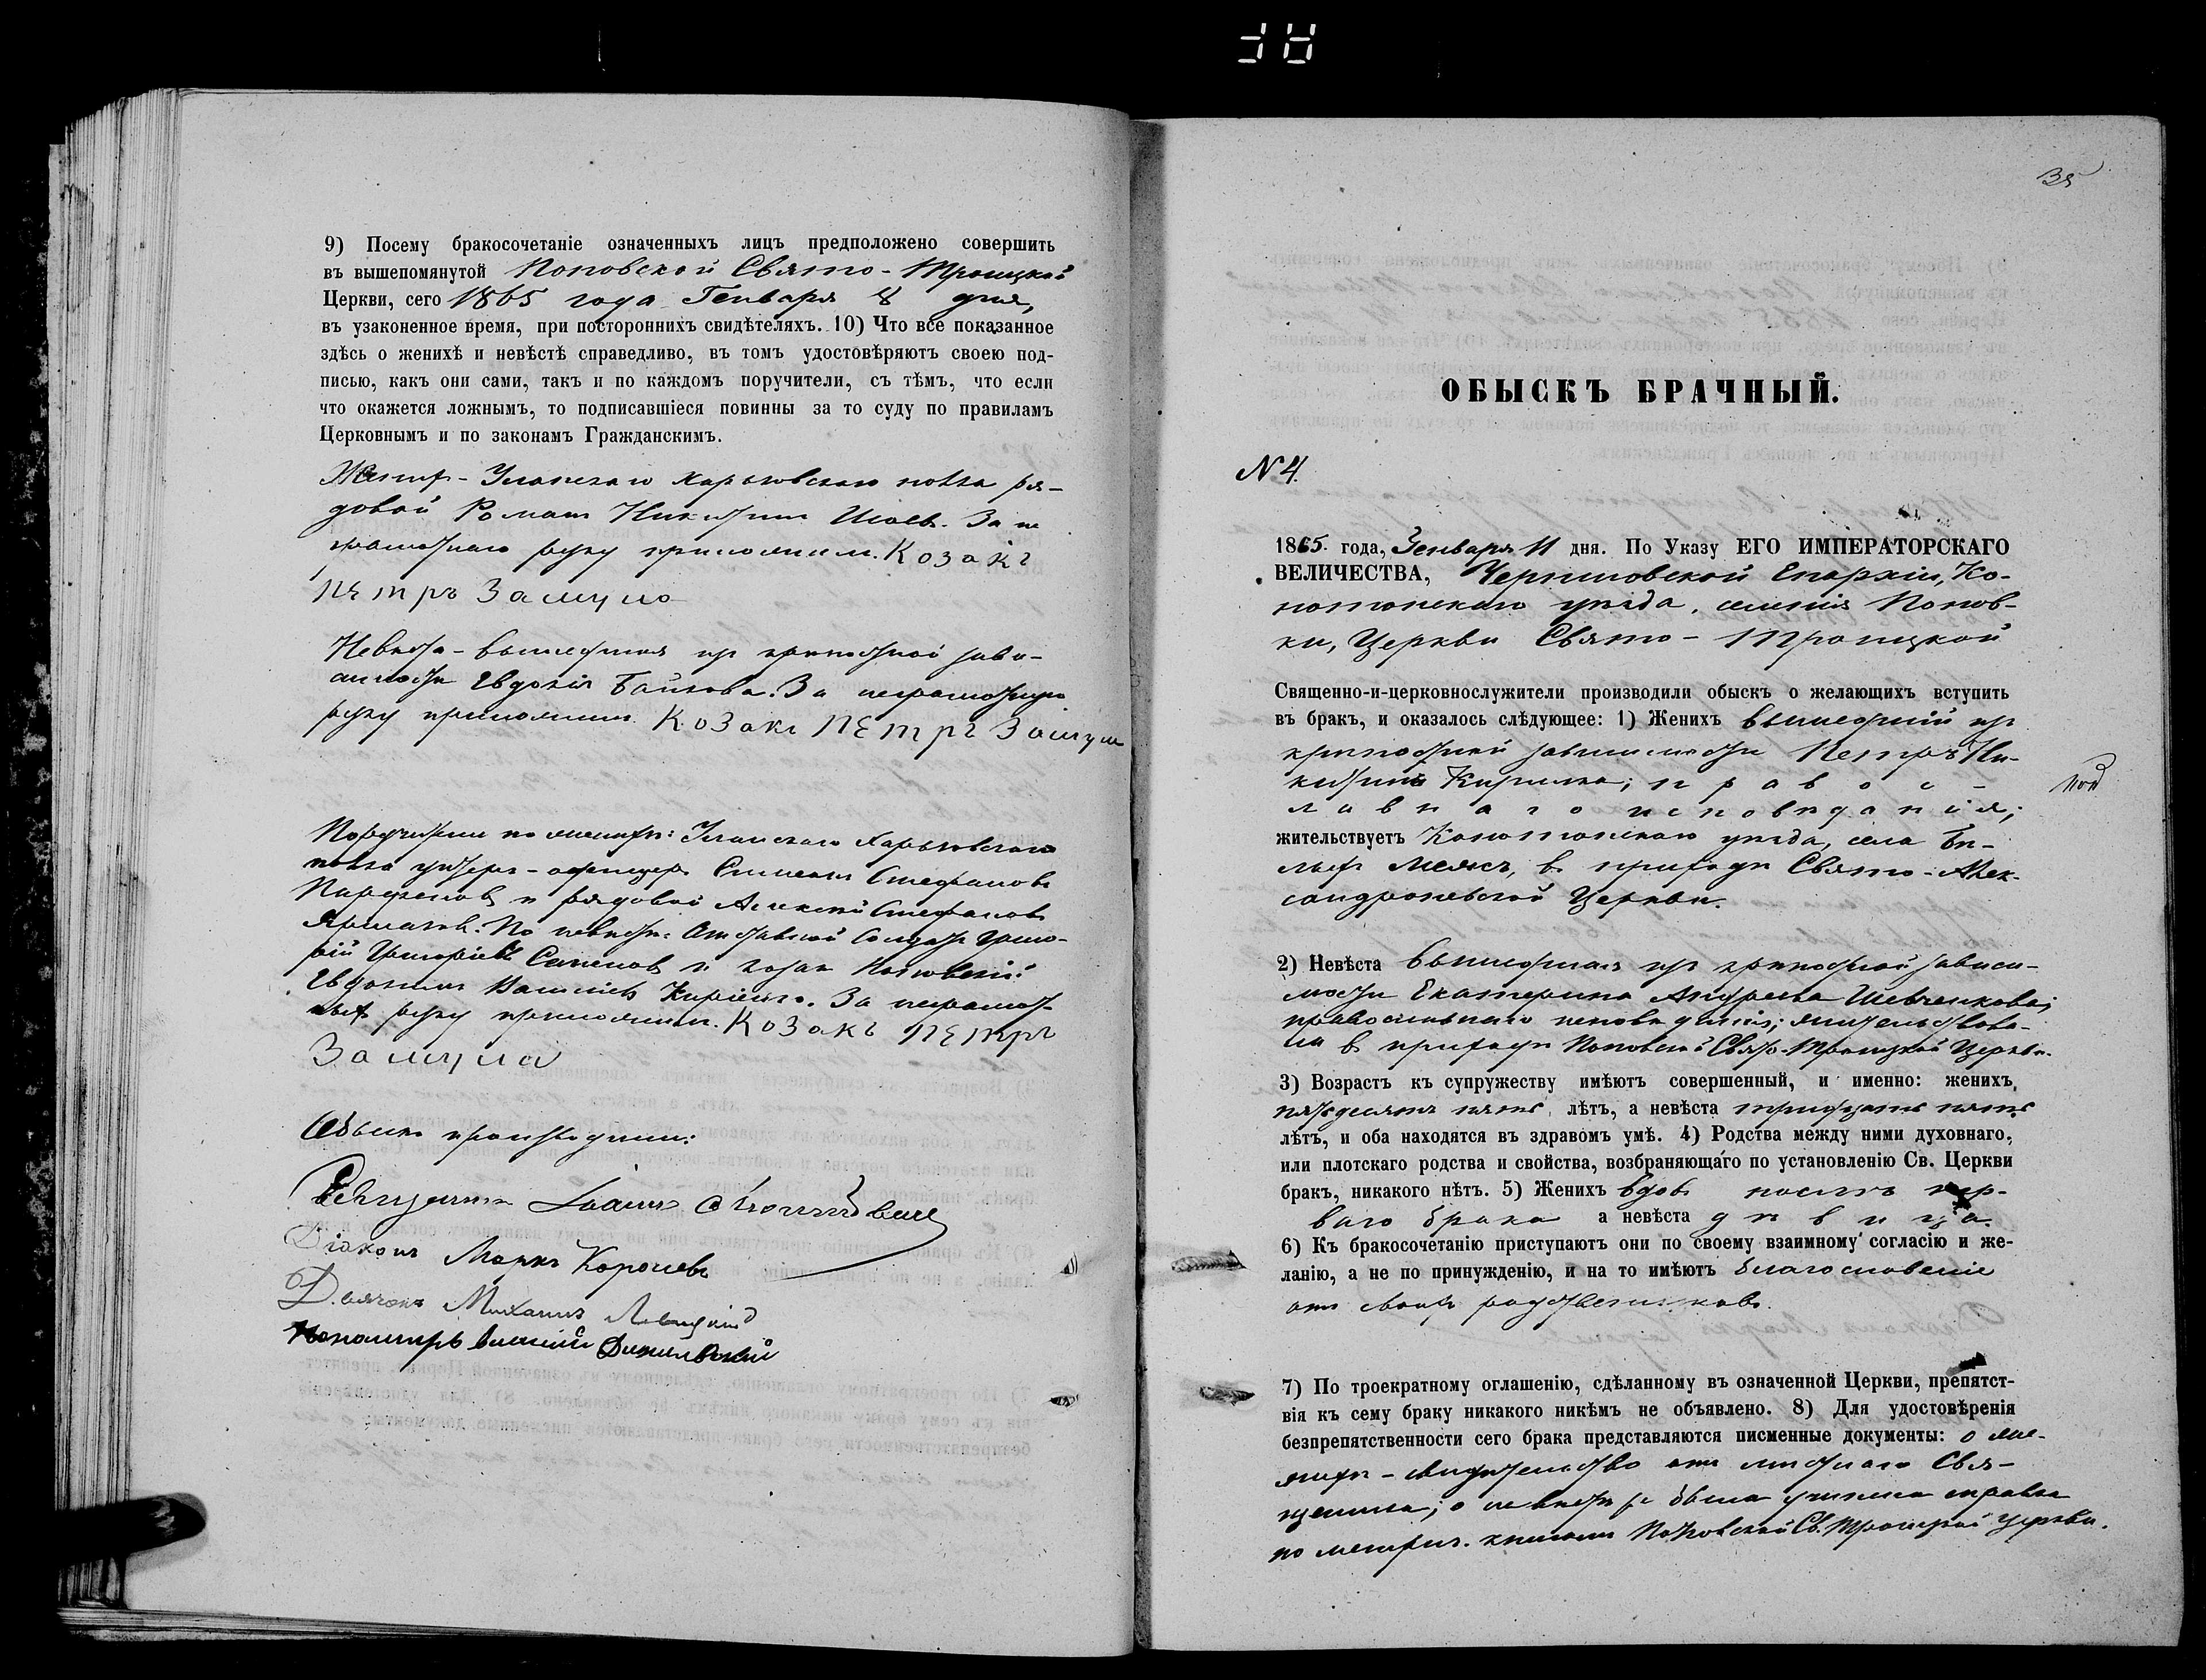 9) Посему бракосочетаніе означенныхъ лицъ предположено совершить
въ вышепомянутой Поповской Свято-Троицкой
Церкви, сего 1865 года Генваря 8 дня,
въ узаконенное время, при постороннихъ свидѣтеляхъ. 10) Что все показанное
здѣсь о женихѣ и невѣстѣ справедливо, въ томъ удостовѣряютъ своею под-
писью, какъ они сами, такъ и по каждомъ поручители, съ тѣмъ, что если
что окажется ложнымъ, то подписавшіеся повинны за то суду по правиламъ
Церковнымъ и по законамъ Гражданскимъ.
Женихъ - Уланскаго Харьковскаго полка ря-
довой Романъ Никитинъ За не
грамотнаго руку приложилъ. Козакъ
Петръ
Невѣста - вышедшая изъ крѣпостной зави-
симости Евдокія Байкова. За неграмотную
руку приложилъ Козакъ Петръ
Поручители по женихѣ: Уланскаго Харьковскаго
полка унтеръ-офицеръ Стефановъ
и рядовой Алексѣй Стефановъ
По невѣстѣ: Отставной Солдатъ Григо-
рій Григоріевъ и козакъ Поповскій
За неграмот-
ныхъ руку приложилъ. Козакъ Петръ
Обыскъ производили:
Священникъ Іоаннъ
Діаконъ Маркъ Королевъ
Дьячокъ Михаилъ Левицкій
Пономарь
38
ОБЫСКЪ БРАЧНЫЙ.
N 4.
1865. года, Генваря 11 дня. По Указу ЕГО ИМПЕРАТОРСКАГО
ВЕЛИЧЕСТВА, Черниговской Епархіи, Ко-
нотопскаго уѣзда, селенія Попов-
ки, Церкви Свято-Троицкой
Священно-и-церковнослужители производили обыскъ о желающихъ вступить
въ бракъ, и оказалось слѣдующее: 1) Женихъ вышедшій изъ
крѣпостной зависимости Петръ Ни-
китинъ православ-
лавнаго исповѣданія;
жительствуетъ Конотопскаго уѣзда, села Бѣ-
лыхъ Межъ, въ приходѣ Свято-Алек-
сандроневской Церкви.
2) Невѣста вышедшая изъ крѣпостной зависи-
мости Екатерина Андреева Шевченкова;
православнаго исповѣданія; жительствова-
ла въ приходѣ Поповской Свято-Троицкой Церкви.
3) Возрастъ къ супружеству имѣютъ совершенный, и именно: женихъ
пятьдесятъ пять лѣтъ, а невѣста тридцать пять
лѣтъ, и оба находятся въ здравомъ умѣ. 4) Родства между ними духовнаго,
или плотскаго родства и свойства, возбраняющаго по установленію Св. Церкви
бракъ, никакого нѣтъ. 5) Женихъ вдовъ послѣ пер-
ваго брака а невѣста дѣвица.
6) Къ бракосочетанію приступаютъ они по своему взаимному согласію и же-
ланію, а не по принужденію, и на то имѣютъ благословеніе
отъ своихъ родственниковъ.
7) По троекратному оглашенію, сдѣланному въ означенной Церкви, препятст-
вія къ сему браку никакого никѣмъ не объявлено. 8) Для удостовѣренія
безпрепятственности сего брака представляются писменные документы: о же-
нихѣ - свидѣтельство отъ мѣстнаго Свя-
щенника; о невѣстѣ же была учинена справка
по метрич. книгамъ Поповской Св. Троицкой Церкви.